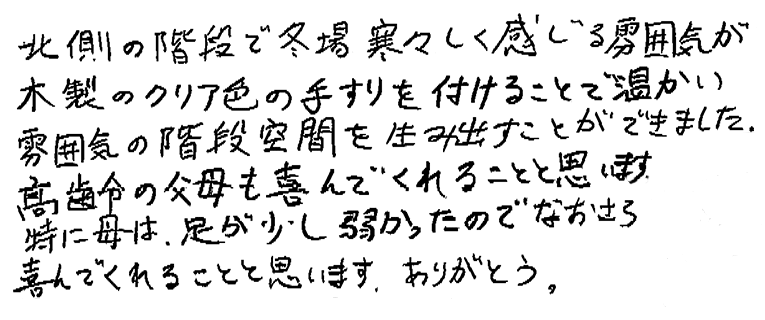 北側の階段で冬場寒々しく感じる雰囲気が
木製のクリア色の手すりを付けることで温かい
雰囲気の階段空間を生み出すことができました.
高齢令の父母も喜んでくれることと思います.
特に母は、足が少し弱かったのでなおさら
喜んでくれることと思います. ありがとう。